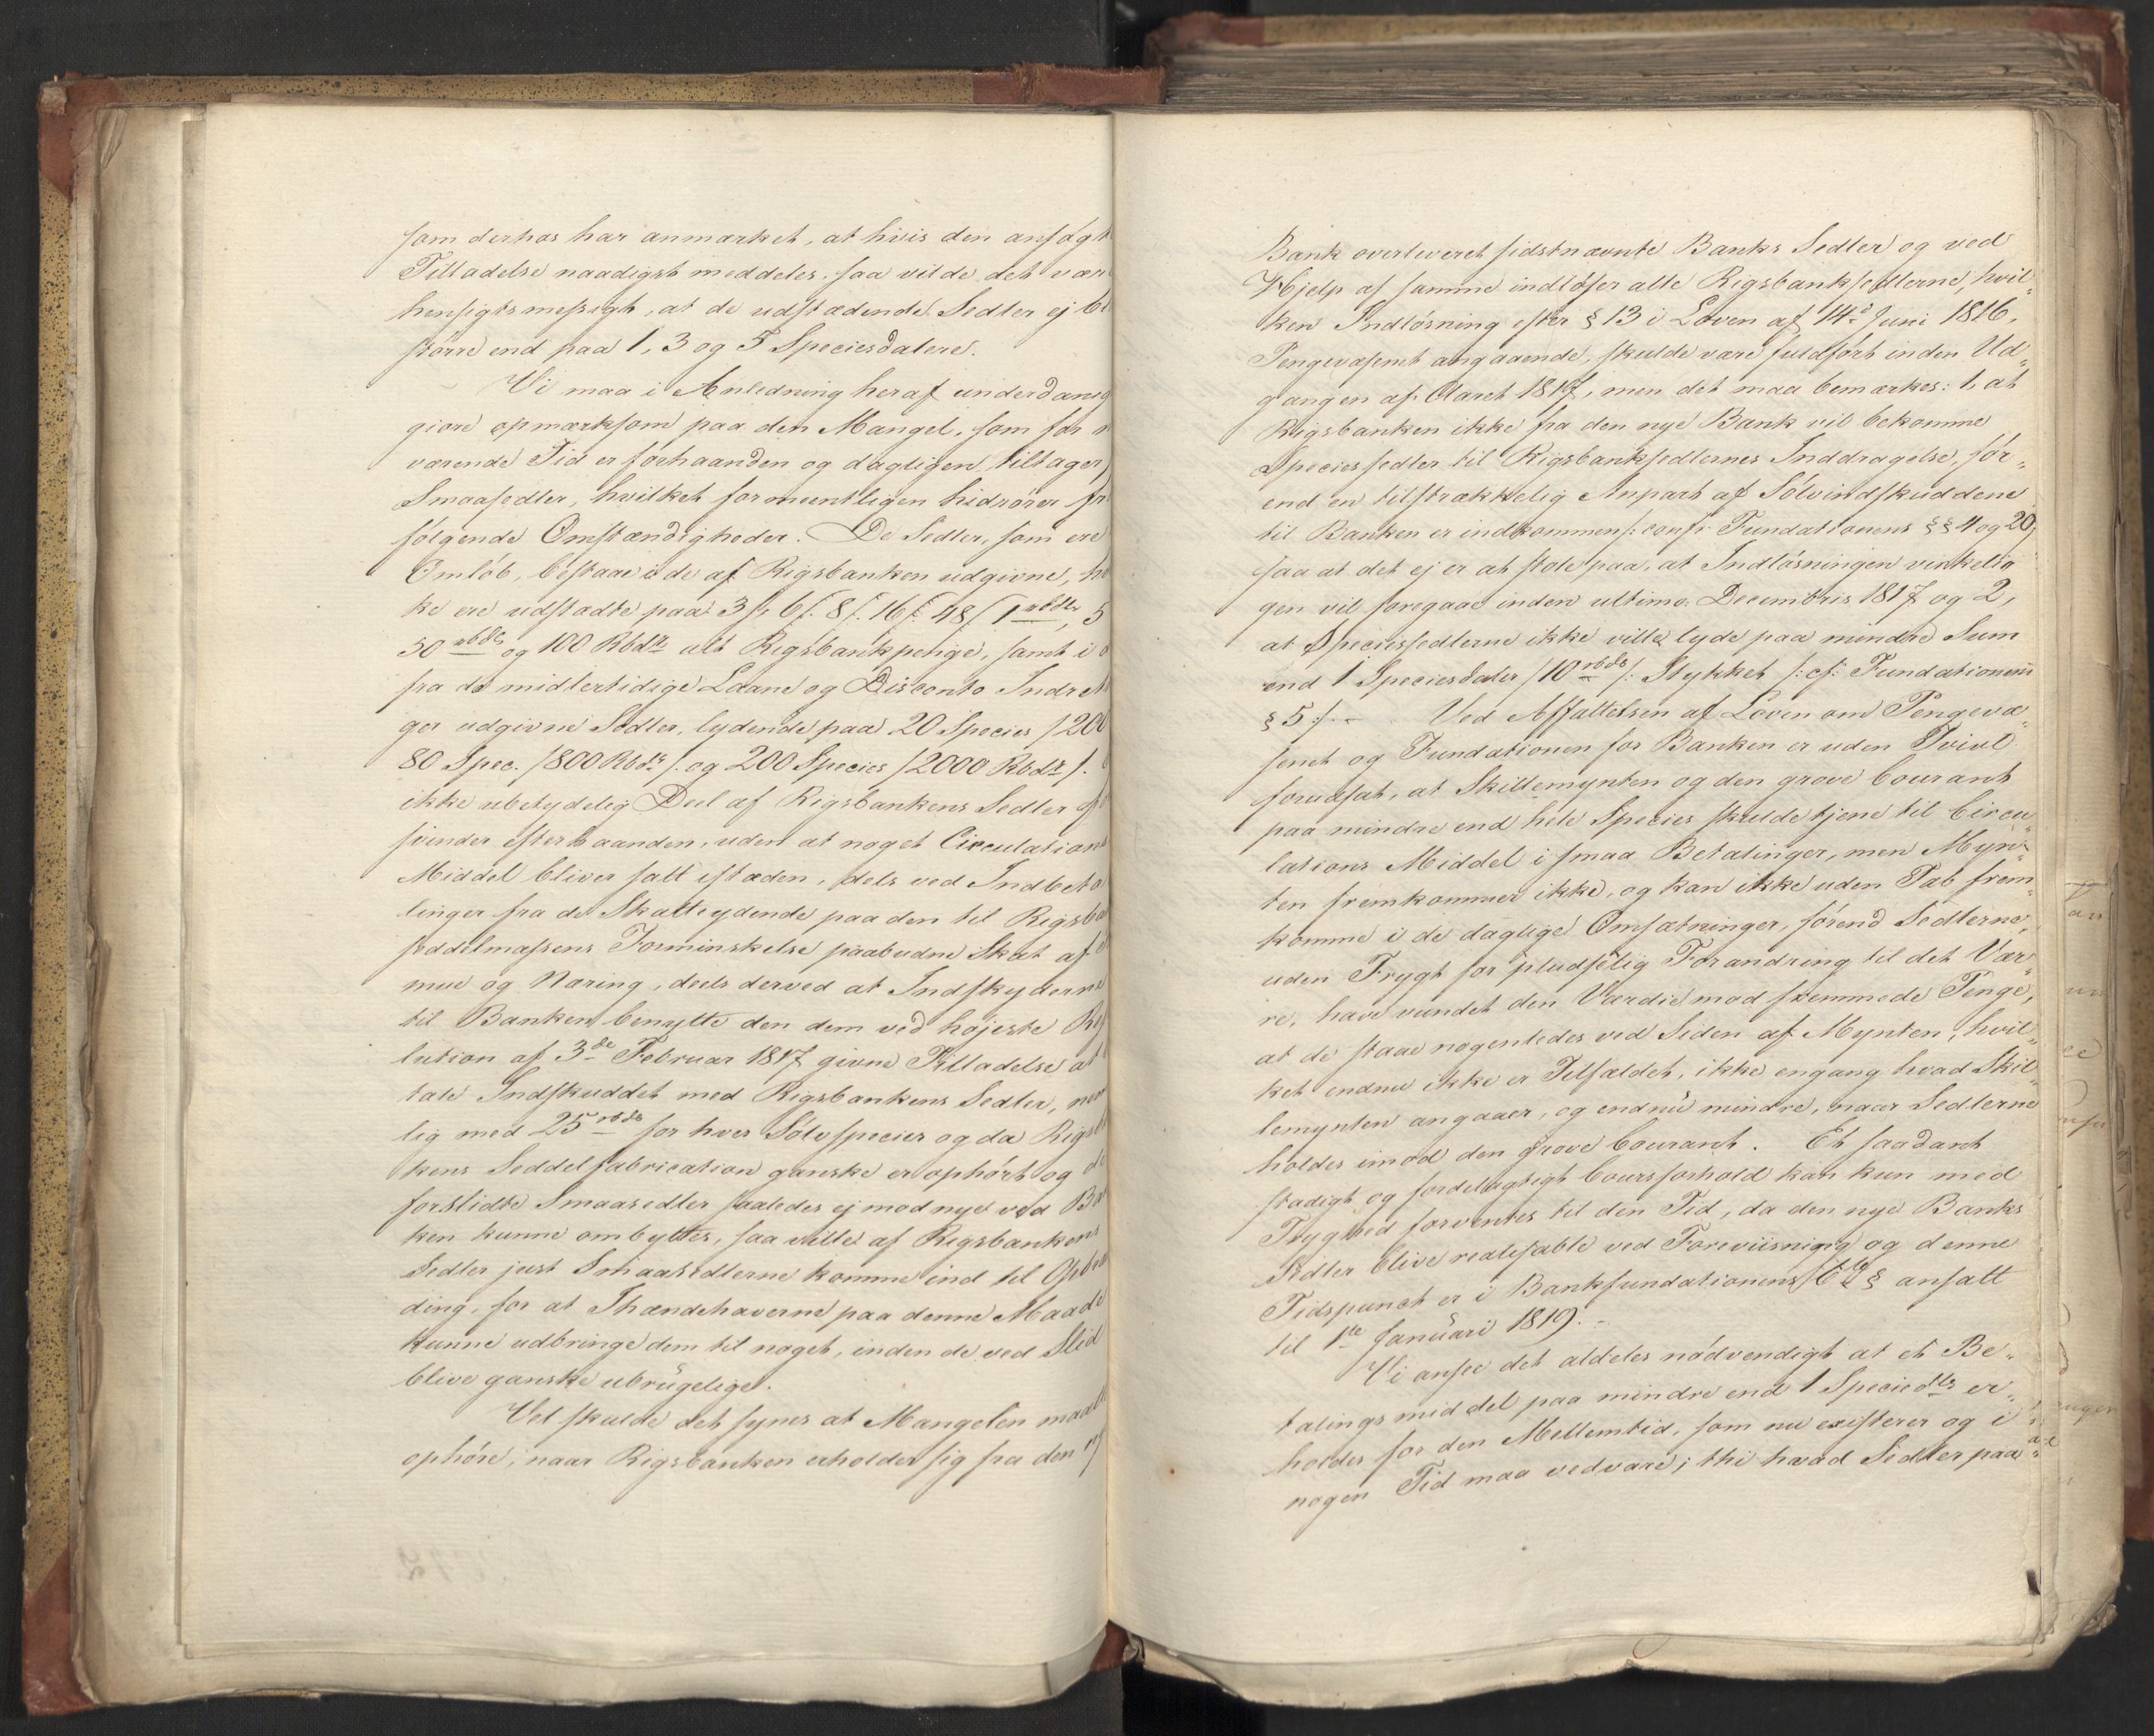 som derhos har anmærket, at hvis den ansøgt
Tilladelse naadigst meddeles, saa vilde det vær
hensigtsmessigt, at de udstædende Sedler ej bl
større end paa 1, 3 og 5 Speciesdalere.
Vi maa i Anledning heraf underdanig
giøre opmærksom paa den Mangel, som for n
værende Tid er forhaanden og dagligen tiltager
Smaasedler, hvilket formeentligen hidrører fr
følgende Omstændigheder. De Sedler, som ere
Omløb, bestaae i de af Rigsbanken udgivne, hv
ke ere udstædte paa 3 /, 6 /. 8 /. 16 /. 48 / 1 rbdlr, 5
50 rbdlr og 100 Rbdlr alt Rigsbankpenge, samt i d
fra de midlertidige Laane og Disconto Indret
ger udgivne Sedler, lydende paa 20 Species /200
80 Spec. /800 Rbdr/. og 200 Species /2000 Rbdr/.
ikke ubetydelig Deel af Rigsbankens Sedler for
svinder efterhaanden, uden at noget Circulations
Middel bliver satt istæden, dels ved Indbeta
linger fra de Skatteydende paa den til Rigsba
seddelmassens Forminskelse paabudne Skat af
mue og Næring, deels derved at Indskyderne
til Banken benytte den dem ved højeste Re
lution af 3de Februar 1817 givne Tilladelse at
tale Indskuddet med Rigsbankens Sedler, nem
lig med 25 rbdr for hver Sølvspecies og da Rigsb
kens Seddelfabrication ganske er ophørt og de
forslidte Smaasedler saaledes ej mod nye ved Ba
ken kunne ombyttes, saa ville af Rigsbankens
Sedler just Smaasedlerne komme ind til
ding, for at Ihændehaverne paa denne Maade
kunne udbringe dem til noget, inden de ved Slid
blive ganske ubrugelige.
Vel skulde det synes at Mangelen maat
ophøre, naar Rigsbanken erholder sig fra den ny
Bank overleveret sidstnævnte Banks Sedler og ved
Hjelp af samme indløser alle Rigsbanksedlerne, hvil„
ken Indløsning efter § 13 i Loven af 14de Juni 1816,
Pengevæsenet angaaende, skulde være fuldført inden Ud„
gangen af Aaret 1817, men det maa bemærkes: 1, at
Rigsbanken ikke fra den nye Bank vil bekomme
Speciessedler til Rigsbanksedlernes Inddragelse, før„
end en tilstrækkelig Anpart af Sølvindskuddene
til Banken er indkommen /: confr Fundationens §§ 4 og 20,
saa at det ej er at stole paa, at Indløsningen virkelig
gen vil foregaae inden ultimo Decembris 1817 og 2,
at Speciessedlerne ikke ville lyde paa mindre Sum
end 1 Speciesdaler /10 rbdr/: Stykket /: cf: Fundationens
§ 5 :/. - Ved Affattelsen af Loven om Pengevæ„
senet og Fundationen for Banken er uden Tvivl
forudsat, at Skillemynten og den grove Courant
paa mindre end hele Species skulde tjene til Circu„
lations Middel i smaa Betalinger, men Myn„
ten fremkommer ikke, og kan ikke uden Tab frem„
komme i de daglige Omsætninger, førend Sedlerne,
uden Frygt for pludselig Forandring til det Vær„
re, have vundet den Værdie mod fremmede Penge,
at de staae nogenledes ved Siden af Mynten, hvil„
ket endnu ikke er Tilfældet, ikke engang hvad Skil„
lemynten angaaer, og endnu mindre, naar Sedlerne
holdes imod den grove Courant. Et saadant
stadigt og fordelagtigt Coursforhold kan kun med
Tryghed forventes til den Tid, da den nye Banks
Sedler blive realisable ved Foreviisning og denne
Tidspunct er i Bankfundationens 6te § ansatt
til 1te Januari 1819. -
Vi ansee det aldeles nødvendigt at et Be„
talingsmiddel paa mindre end 1 Speciedlr er„
holdes for den Mellemtid, som nu existerer og i
nogen Tid maa vedvare; thi hvad Sedler paa